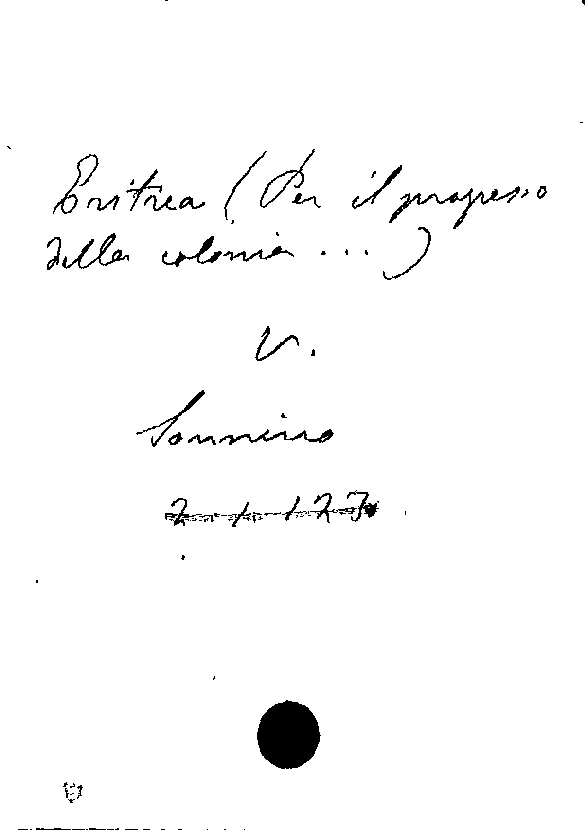 Eritrea (Per il progresso
della colonia ...)
V.
Sonnino